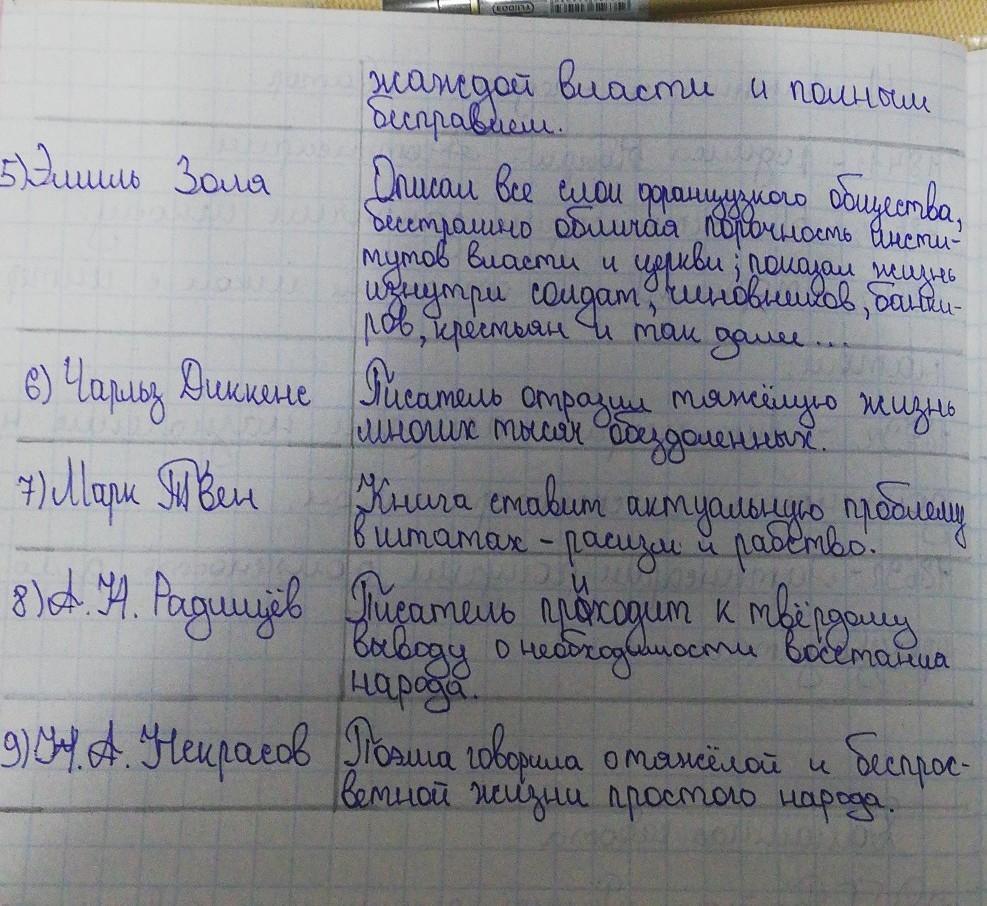 жаждой власти и полным
бесправием.
5) Эмиль Золя
Описал все слои французского общества,
бесстрашно обличая порочность инсти-
тутов власти и церкви; показал жизнь
изнутри солдат, чиновников, банки-
ров, крестьян и так далее...
6) Чарльз Диккенс
Писатель отразил тяжёлую жизнь
многих тысяч обездоленных.
7) Марк Твен
Книга ставит актуальную проблему
в штатах - расизм и рабство.
8) А. Н. Радищев
Писатель приходит к твёрдому
выводу о необходимости восстания
народа.
9) Н. А. Некрасов
Поэма говорила о тяжёлой и беспрос-
ветной жизни простого народа.